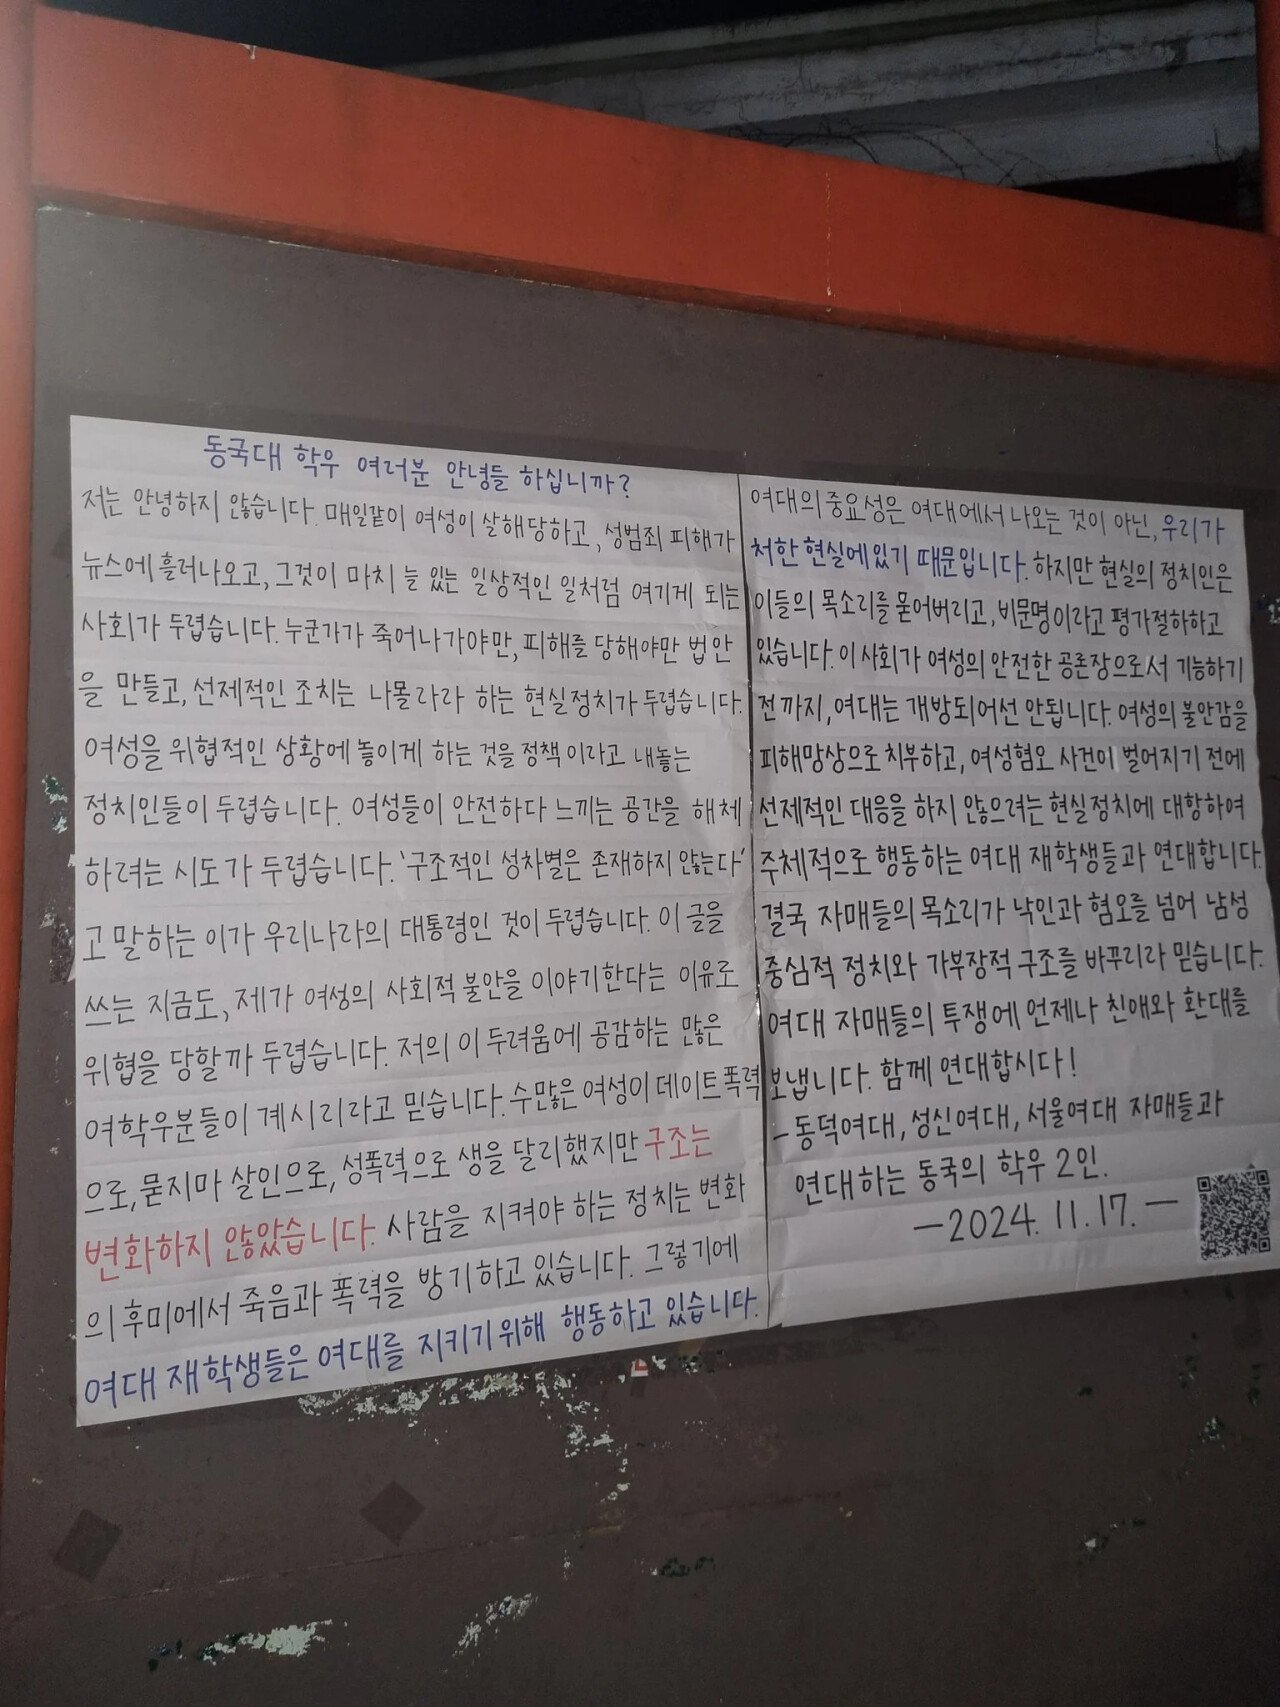 동국대 학우 여러분 안녕들 하십니까?
저는 안녕하지 않습니다. 매일같이 여성이 살해당하고, 성범죄 피해가
뉴스에 흘러나오고, 그것이 마치 늘 있는 일상적인 일처럼 여기게 되는
사회가 두렵습니다. 누군가가 죽어나가야만, 피해를 당해야만 법안
을 만들고, 선제적인 조치는 나몰라라 하는 현실정치가 두렵습니다.
여성을 위협적인 상황에 놓이게 하는 것을 정책이라고 내놓는
정치인들이 두렵습니다. 여성들이 안전하다 느끼는 공간을 해체
하려는 시도가 두렵습니다. '구조적인 성차별은 존재하지 않는다'
고 말하는 이가 우리나라의 대통령인 것이 두렵습니다. 이 글을
쓰는 지금도, 제가 여성의 사회적 불안을 이야기한다는 이유로
위협을 당할까 두렵습니다. 저의 이 두려움에 공감하는 많은
여학우분들이 계시리라고 믿습니다. 수많은 여성이 데이트폭력
으로, 묻지마 살인으로, 성폭력으로 생을 달리했지만 구조는
변화하지 않았습니다. 사람을 지켜야 하는 정치는 변화
의 후미에서 죽음과 폭력을 방기하고 있습니다. 그렇기에
여대 재학생들은 여대를 지키기 위해 행동하고 있습니다.
여대의 중요성은 여대에서 나오는 것이 아닌, 우리가
처한 현실에 있기 때문입니다. 하지만 현실의 정치인은
이들의 목소리를 묻어버리고, 비문명이라고 평가절하하고
있습니다. 이 사회가 여성의 안전한 공론장으로서 기능하기
전까지, 여대는 개방되어선 안됩니다. 여성의 불안감을
피해망상으로 치부하고, 여성혐오 사건이 벌어지기 전에
선제적인 대응을 하지 않으려는 현실정치에 대항하여
주체적으로 행동하는 여대 재학생들과 연대합니다.
결국 자매들의 목소리가 낙인과 혐오를 넘어 남성
중심적 정치와 가부장적 구조를 바꾸리라 믿습니다.
여대 자매들의 투쟁에 언제나 친애와 환대를
보냅니다. 함께 연대합시다!
-동덕여대, 성신여대, 서울여대 자매들과
연대하는 동국의 학우 2인.
-2024. 11. 17. -